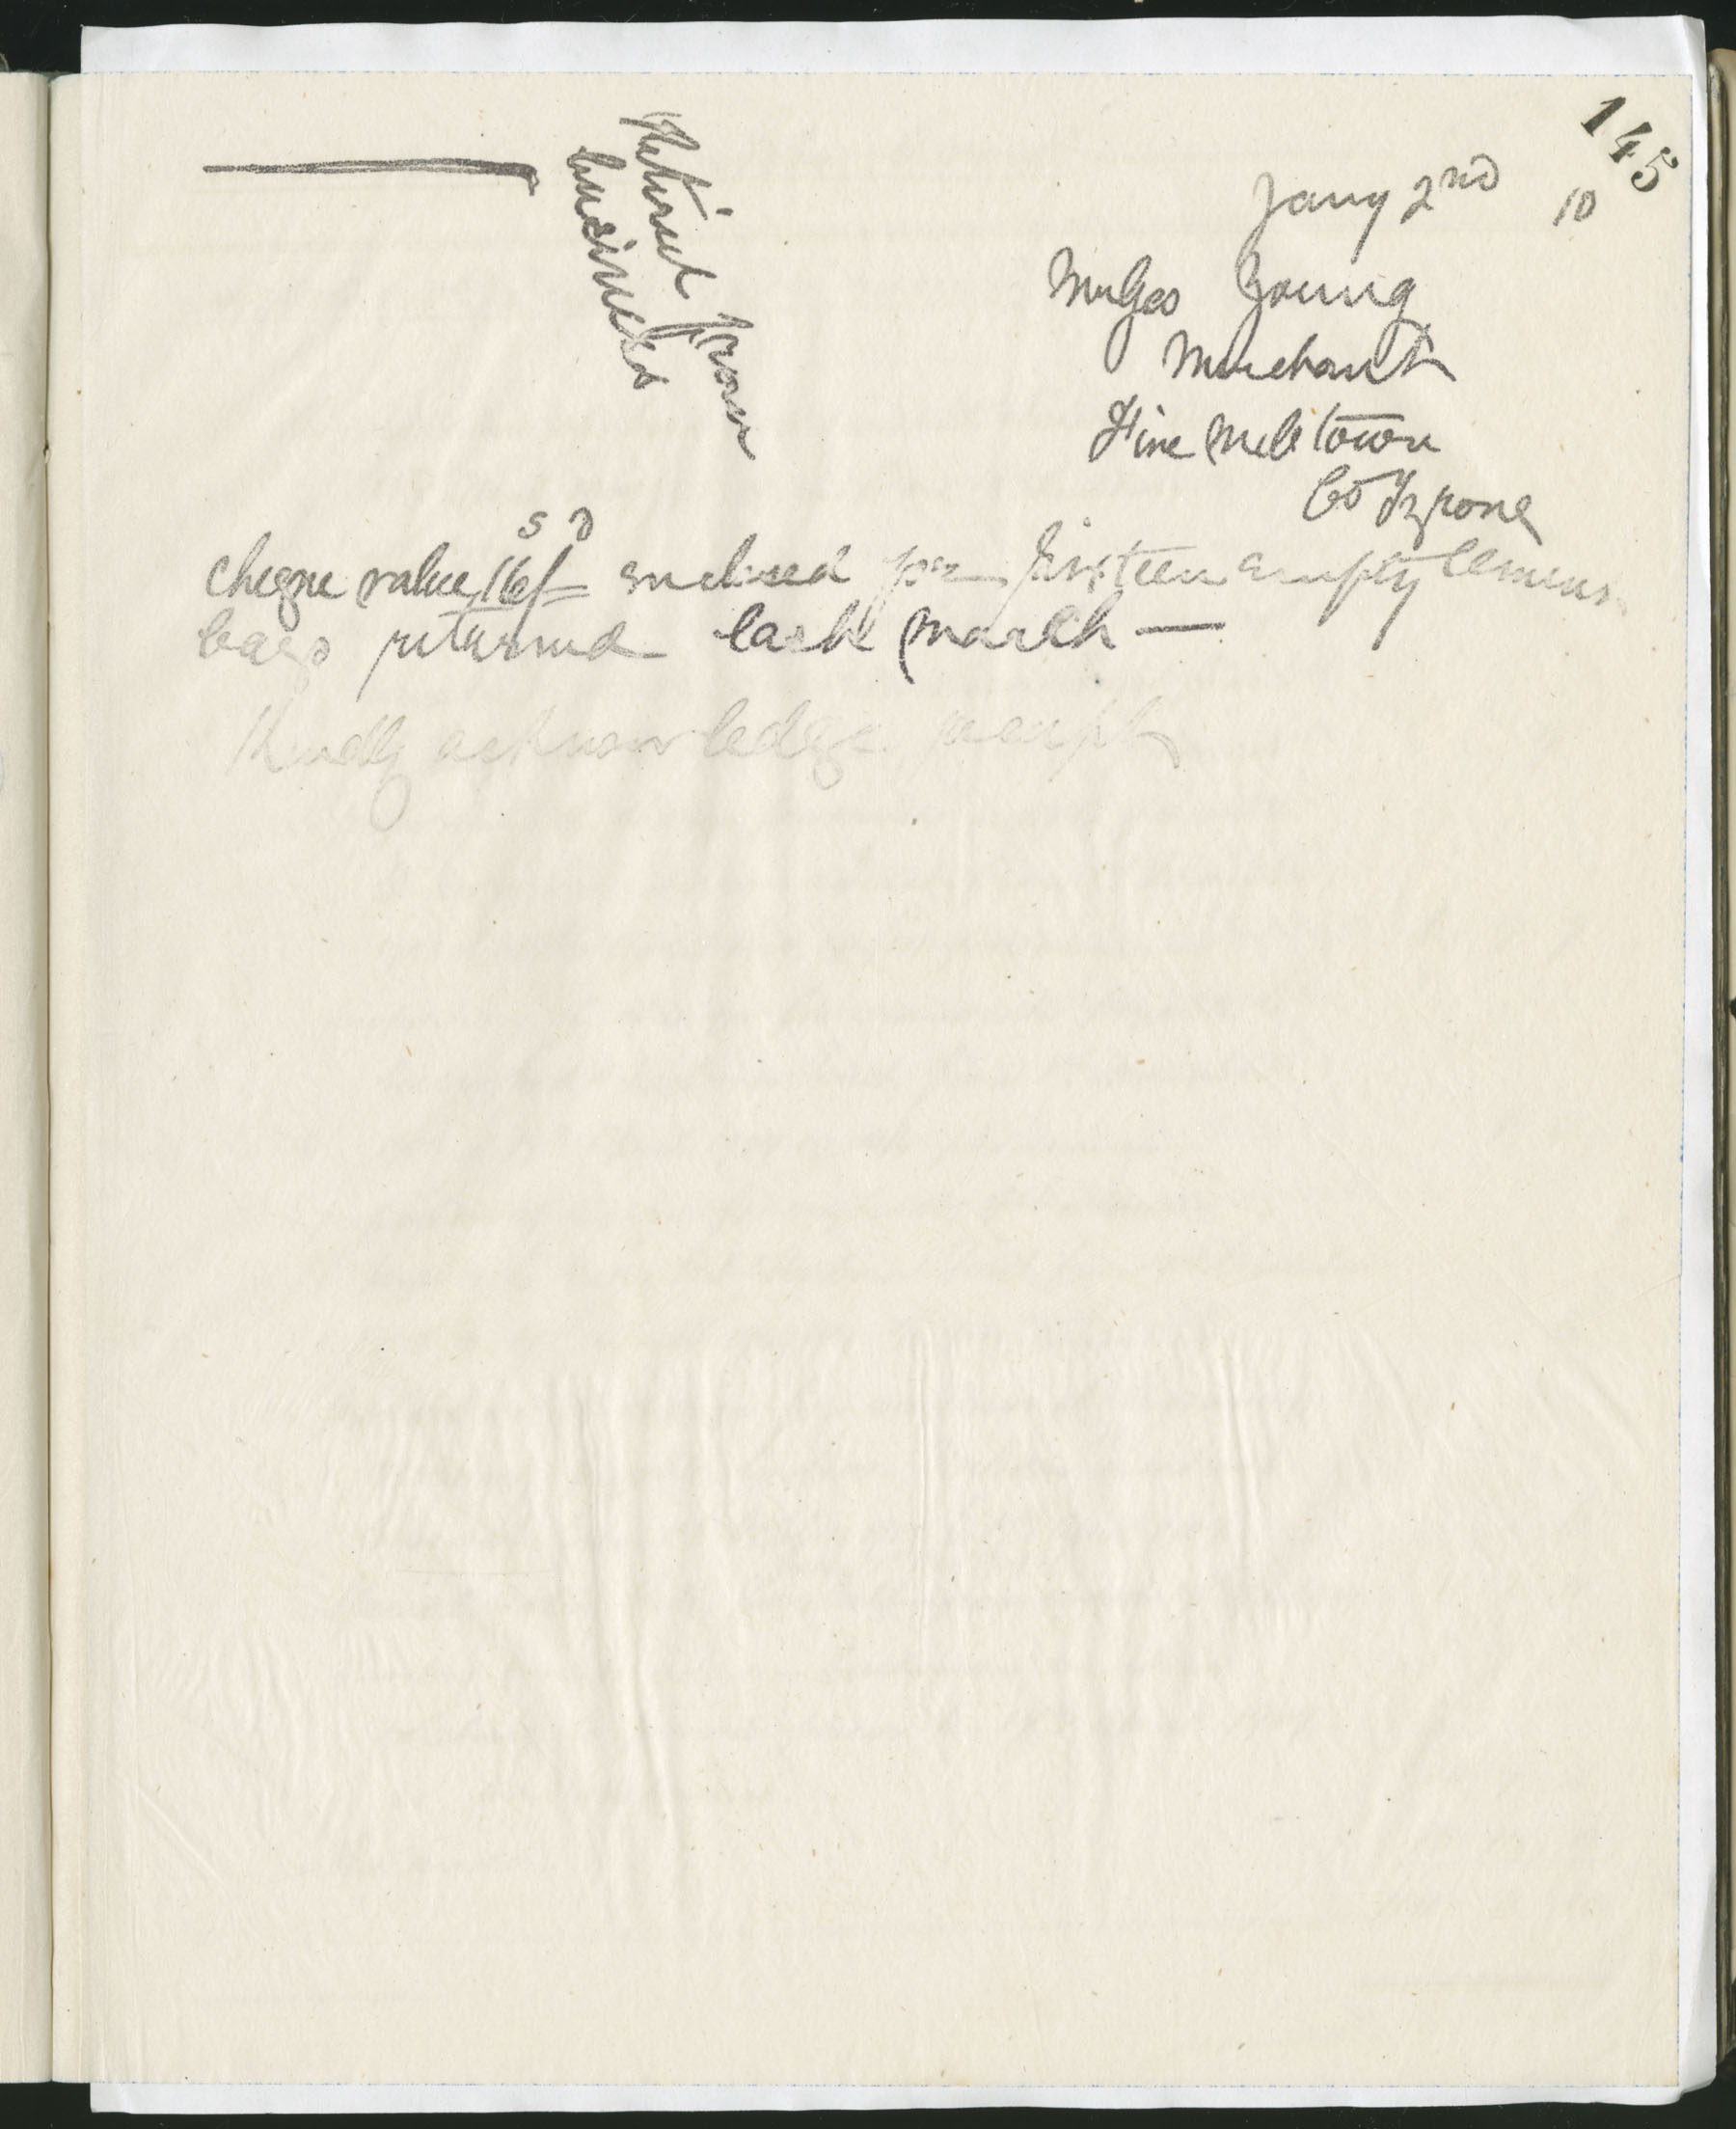 145
Jany 2nd 10
Mr Geo Young
Merchant
Fivemiletown
Co Tyrone
Retired from
business
s d
cheque value 16/= enclosed for sixteen empty cement
bags returned last March —
Kindly acknowledge receipt